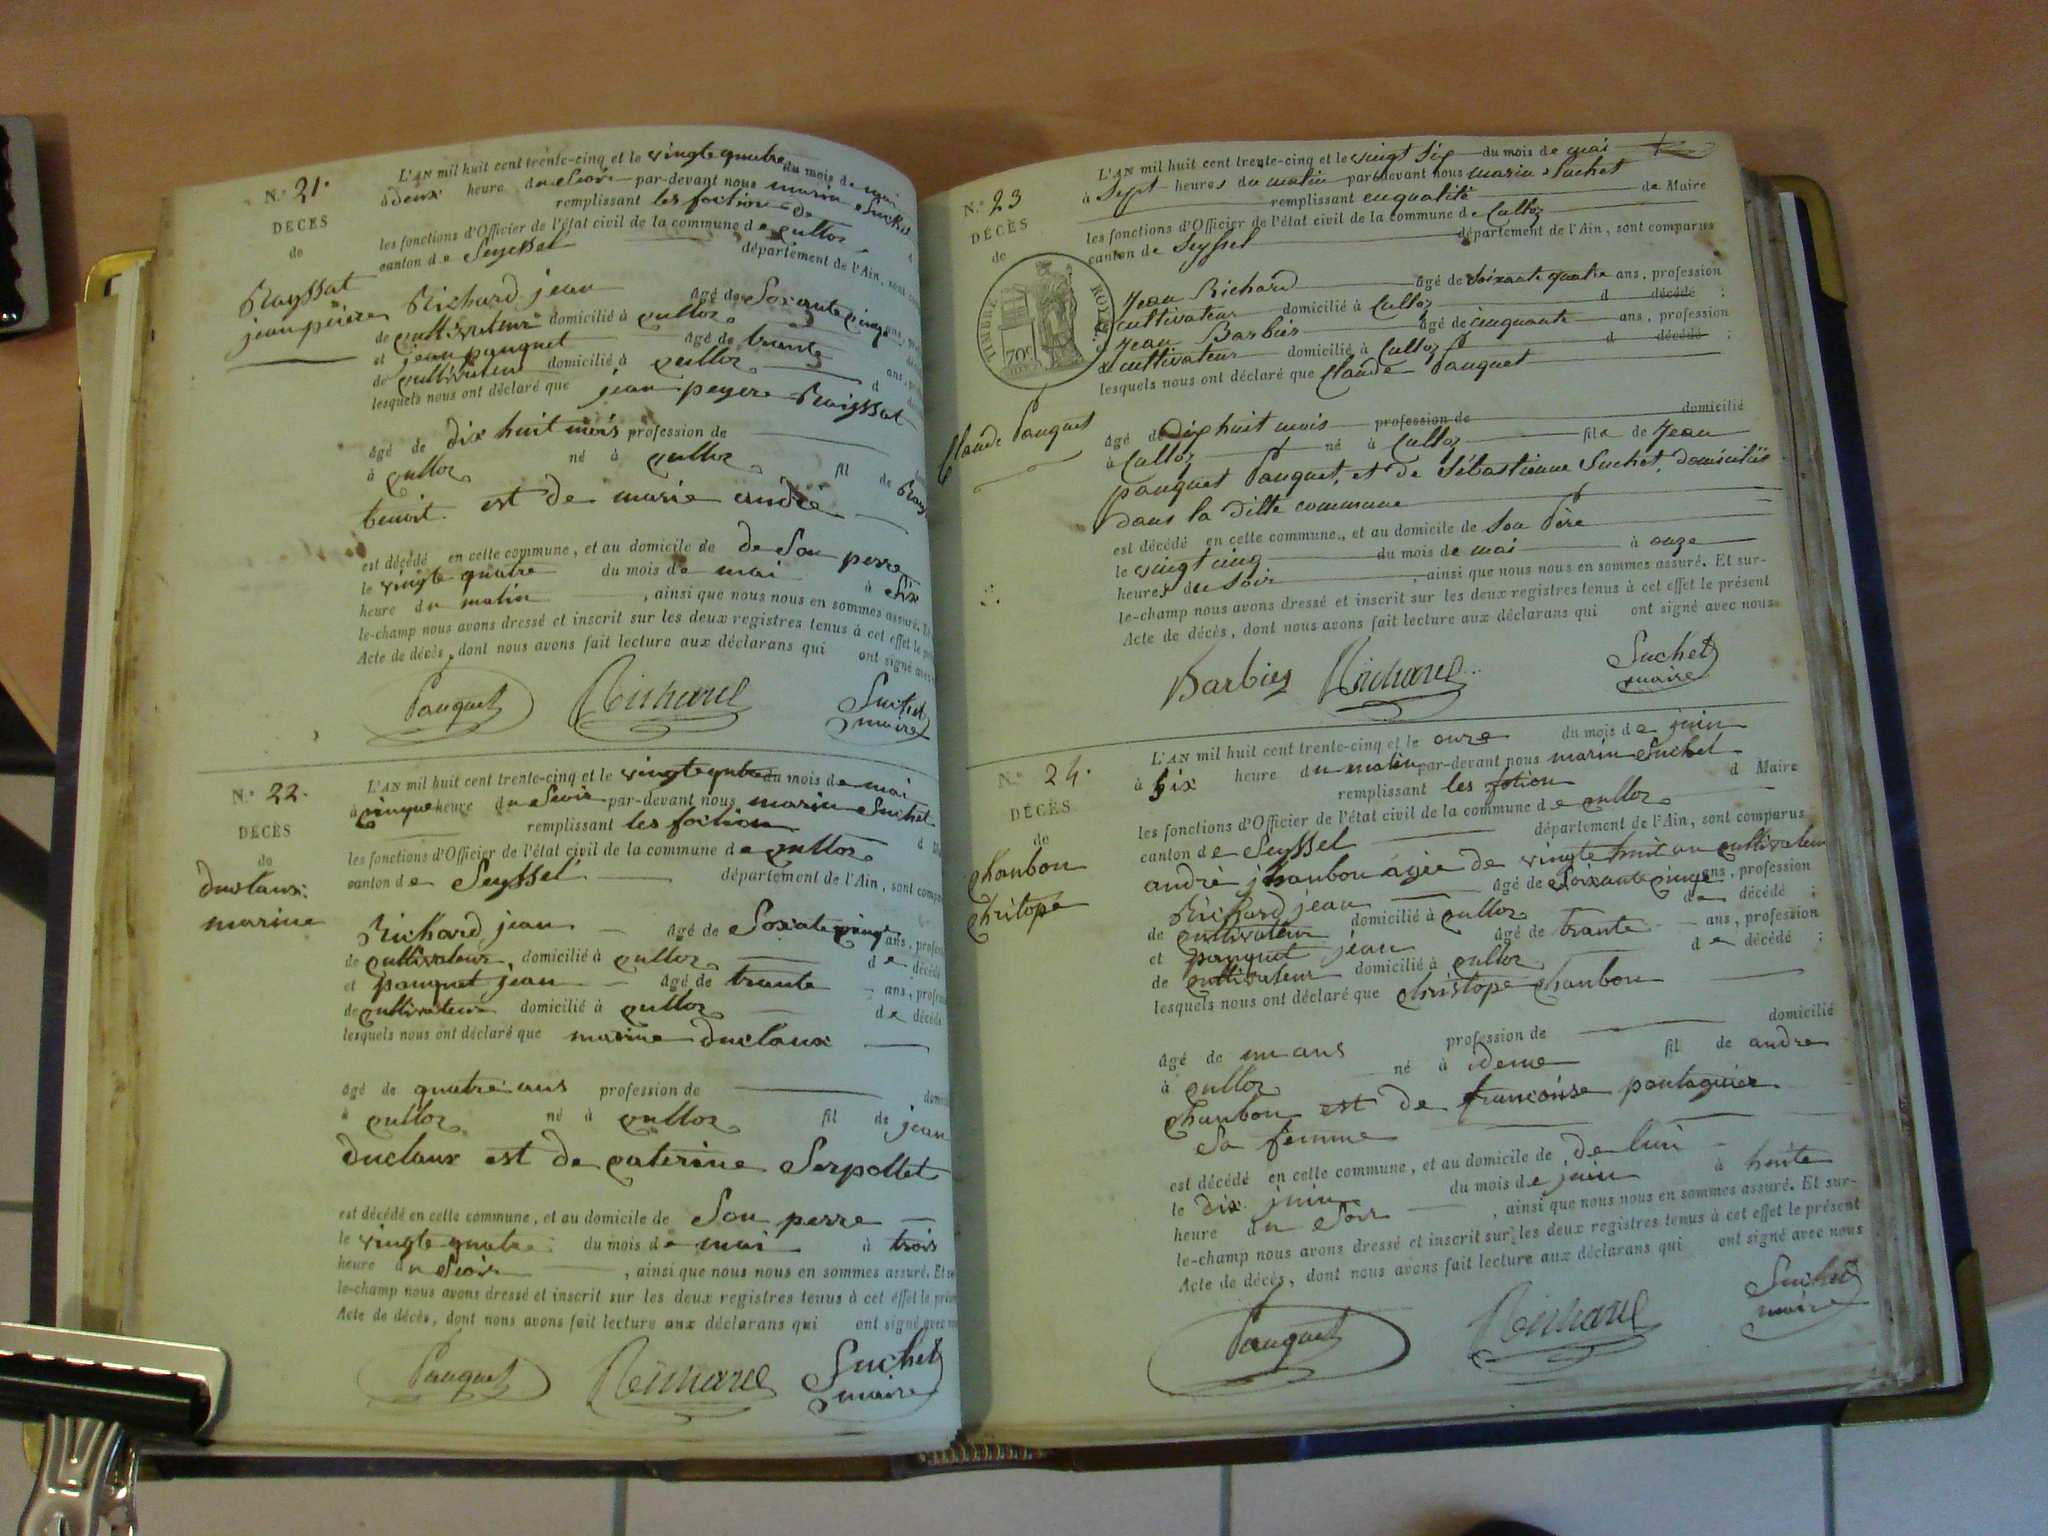 N.° 21.
DÉCÈS
de
Rayssat
jean pierre
L'AN mil huit cent trente-cinq et le vingte quatre du mois de mai
à deux heure du Soir par-devant nous marin Suchet
remplissant les foction de
les fonctions d'Officier de l'état civil de la commune de Culloz
canton de Seyssel département de l'Ain, sont
Richard jean âgé de Soxante cinq ans
de cultivateur domicilié à Culloz
et jean pauquet âgé de trante ans
de cultivateur domicilié à Culloz d
lesquels nous ont déclaré que jean peyere Raissat
âgé de dix huit mois profession de
à Culloz né à Culloz fil de
benoit est de marie andre
est décédé en cette commune, et au domicile de de Son perre
le vingte quatre du mois de mai à Six
heure du matin, ainsi que nous nous en sommes assuré. Et
le-champ nous avons dressé et inscrit sur les deux registres tenus à cet effet le
Acte de décès, dont nous avons fait lecture aux déclarans qui ont signé avec
Pauquet Richard Suchet
maire
N.° 22.
DÉCÈS
de
duclaux
marine
L'AN mil huit cent trente-cinq et le vingte qutre du mois de mai
à cinque heure du Soir par-devant nous marin Suchet
remplissant les foction d
les fonctions d'Officier de l'état civil de la commune de Culloz
canton de Seyssel département de l'Ain, sont
Richard jean âgé de Soxate cinq ans,
de cultivateur domicilié à Culloz de décédé
et pauquet jean âgé de trante ans,
de cultivateur domicilié à Culloz de décédé
lesquels nous ont déclaré que marine duclaux
âgé de quatre ans profession de
à Culloz né à Culloz fil de jean
duclaux est de caterine Serpollet
est décédé en cette commune, et au domicile de Son perre
le vingte quatre du mois de mai à trois
heure du Soir, ainsi que nous nous en sommes assuré. Et
le-champ nous avons dressé et inscrit sur les deux registres tenus à cet effet le
Acte de décès, dont nous avons fait lecture aux déclarans qui ont signé avec
Pauquet Richard Suchet
maire
N.° 23
DÉCÈS
de
TIMBRE ROYAL
70c
Claude Pauquet
L'AN mil huit cent trente-cinq et le vingt six du mois de mai
à Sept heures du matin par-devant nous marin Suchet
remplissant en qualité de Maire
les fonctions d'Officier de l'état civil de la commune de Culloz
canton de Seyssel département de l'Ain, sont comparus
Jean Richard âgé de Soixante quatre ans, profession
d cultivateur domicilié à Culloz d décédé ;
Jean Barbier âgé de cinquante ans, profession
d cultivateur domicilié à Culloz d décédé ;
lesquels nous ont déclaré que Claude Pauquet
âgé de Dix huit mois profession de domicilié
à Culloz né à Culloz fils de Jean
pauquet Pauquet, et de Sébastienne Suchet, domiciliés
dans la ditte commune
est décédé en cette commune, et au domicile de Son Père
le vingt cinq du mois de mai à onze
heures du Soir, ainsi que nous nous en sommes assuré. Et sur-
le-champ nous avons dressé et inscrit sur les deux registres tenus à cet effet le présent
Acte de décès, dont nous avons fait lecture aux déclarans qui ont signé avec nous
Barbier Richard Suchet
maire
N.° 24.
DÉCÈS
de
chanbon
chritope
L'AN mil huit cent trente-cinq et le onze du mois de juin
à Six heure du matin par-devant nous marin Suchet
remplissant les fotion d Maire
les fonctions d'Officier de l'état civil de la commune de Culloz
canton de Seyssel département de l'Ain, sont comparus
andre chanbon agée de vingte huit an cultivateur
Richard jean âgé de Soixante cinq ans, profession
de cultivateur domicilié à Culloz de décédé ;
et pauquet jean âgé de trante ans, profession
de cultivateur domicilié à Culloz de décédé ;
lesquels nous ont déclaré que christope chanbon
âgé de un ans profession de domicilié
à Culloz né à fil de andre
chanbon est de francoise
Sa femme
est décédé en cette commune, et au domicile de de lui
le dix juin du mois de juin à huite
heure du Soir, ainsi que nous nous en sommes assuré. Et sur-
le-champ nous avons dressé et inscrit sur les deux registres tenus à cet effet le présent
Acte de décès, dont nous avons fait lecture aux déclarans qui ont signé avec nous
Pauquet Richard Suchet
maire